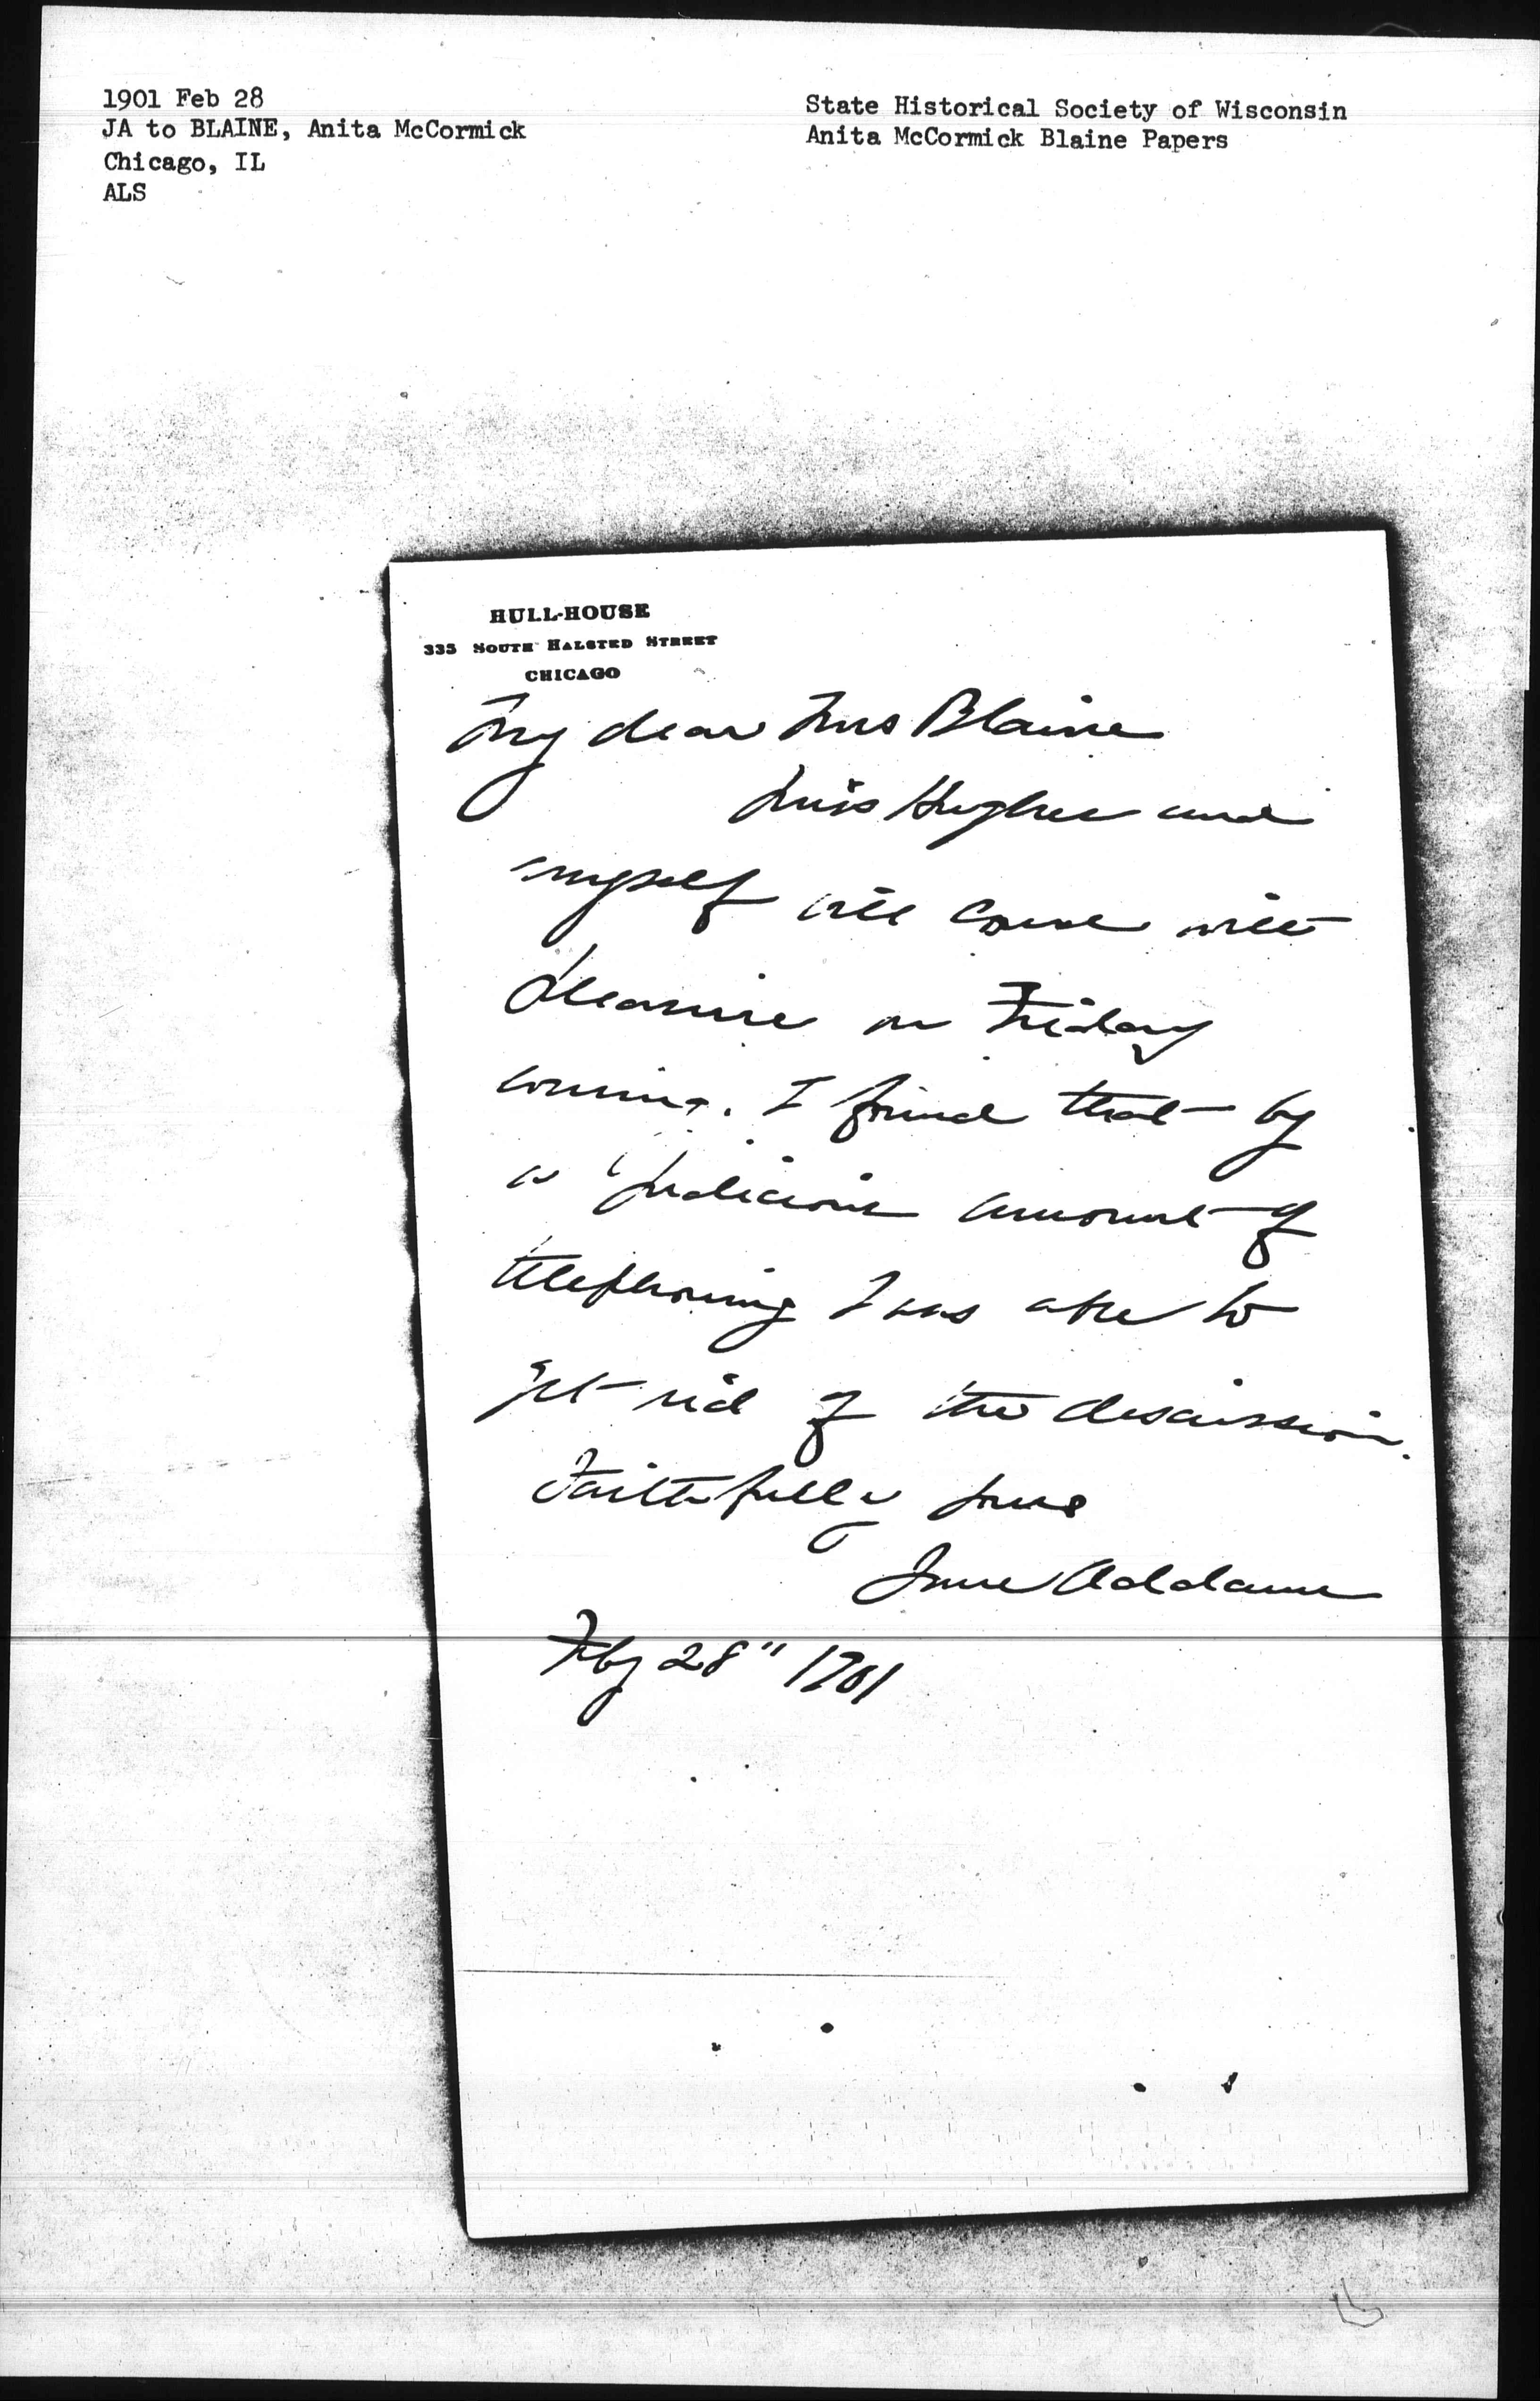 1901 Feb 28
JA to BLAINE, Anita McCormick
Chicago, IL
ALS
State Historical Society of Wisconsin
Anita McCormick Blaine Papers
HULL-HOUSE
335 SOUTH HALSTED STREET
CHICAGO
My dear Mrs Blaine
Miss Hughes and
myself will come with
pleasure on Friday
coming. I found that by
a judicious amount of
telephoning I was able to
get rid of the discussion.
Faithfully yours
Jane Addams
Feby 28" 1901